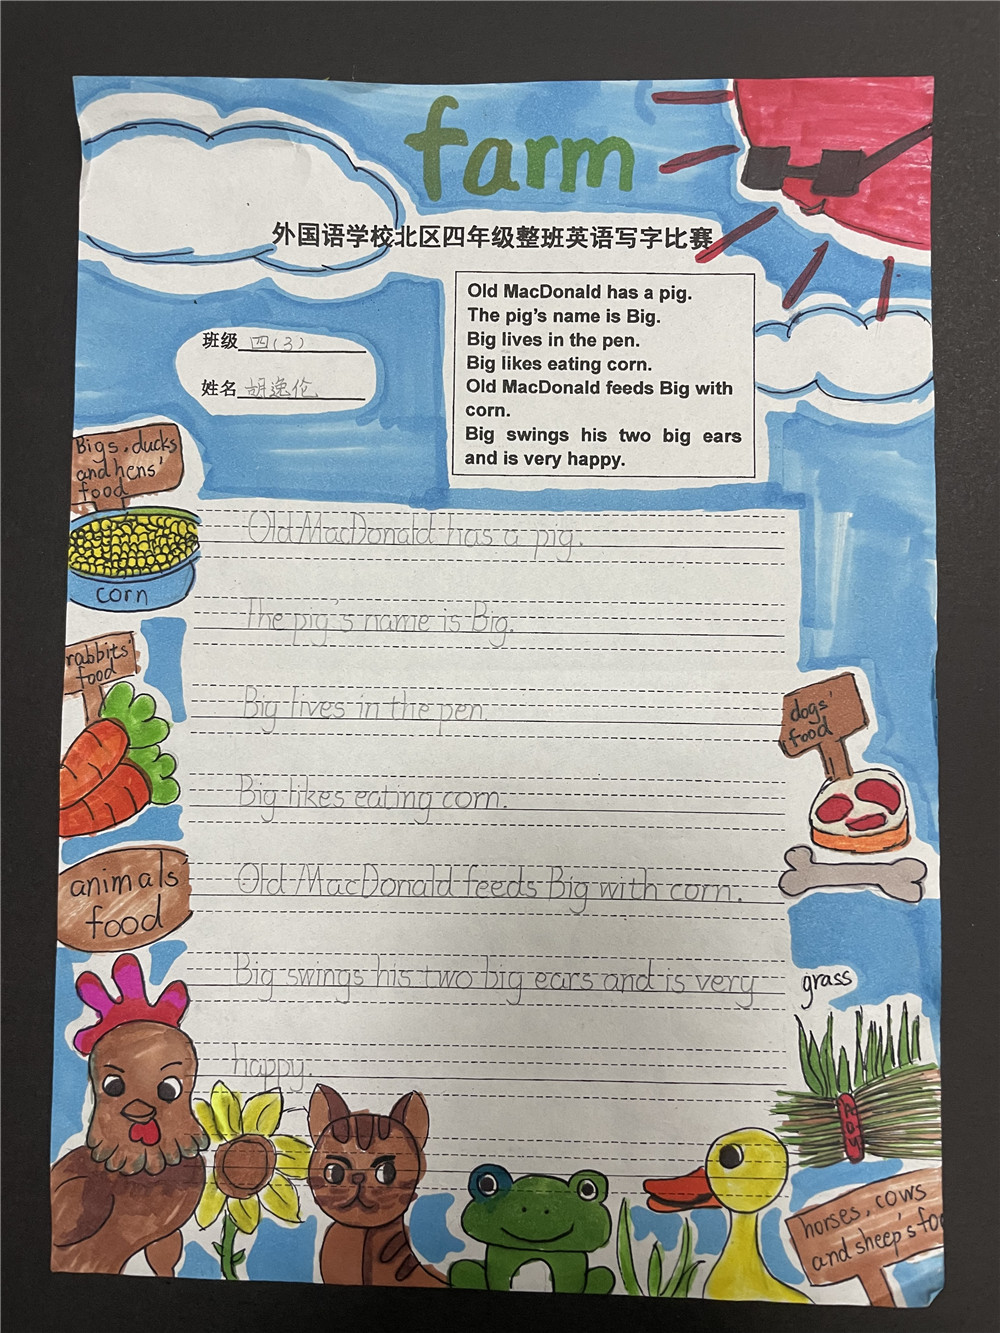 farm
外国语学校北区四年级整班英语写字比赛
Old MacDonald has a pig.
The pig's name is Big.
Big lives in the pen.
Big likes eating corn.
Old MacDonald feeds Big with
corn.
Big swings his two big ears
and is very happy.
班级 四(3)
姓名 胡逸伦
Bigs, ducks
and hens'
food
corn
rabbits'
food
animals'
food
Old MacDonald has a pig.
The pig's name is Big.
Big lives in the pen.
Big likes eating corn.
Old MacDonald feeds Big with corn.
Big swings his two big ears and is very
happy.
dogs'
food
grass
horses, cows
and sheep's foo